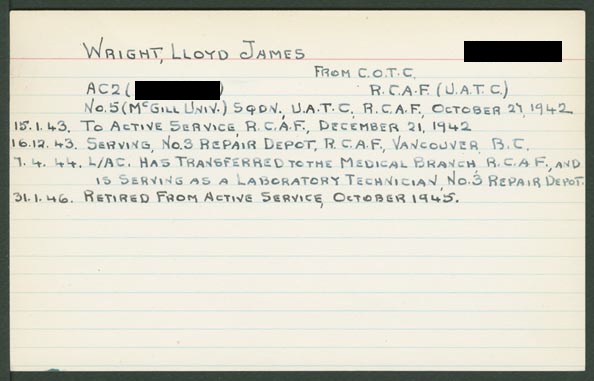 WRIGHT, LLOYD JAMES
FROM C.O.T.C.
AC2 ( ) R.C.A.F. (U.A.T.C.)
NO.5 (MCGILL UNIV.) SQDN., U.A.T.C., R.C.A.F., OCTOBER 27, 1942
15.1.43. TO ACTIVE SERVICE, R.C.A.F., DECEMBER 21, 1942
16.12.43. SERVING, NO.3 REPAIR DEPOT, R.C.A.F., VANCOUVER, B.C.
7.4.44. L/AC. HAS TRANSFERRED TO THE MEDICAL BRANCH R.C.A.F., AND
IS SERVING AS A LABORATORY TECHNICIAN, NO.3 REPAIR DEPOT.
31.1.46. RETIRED FROM ACTIVE SERVICE, OCTOBER 1945.